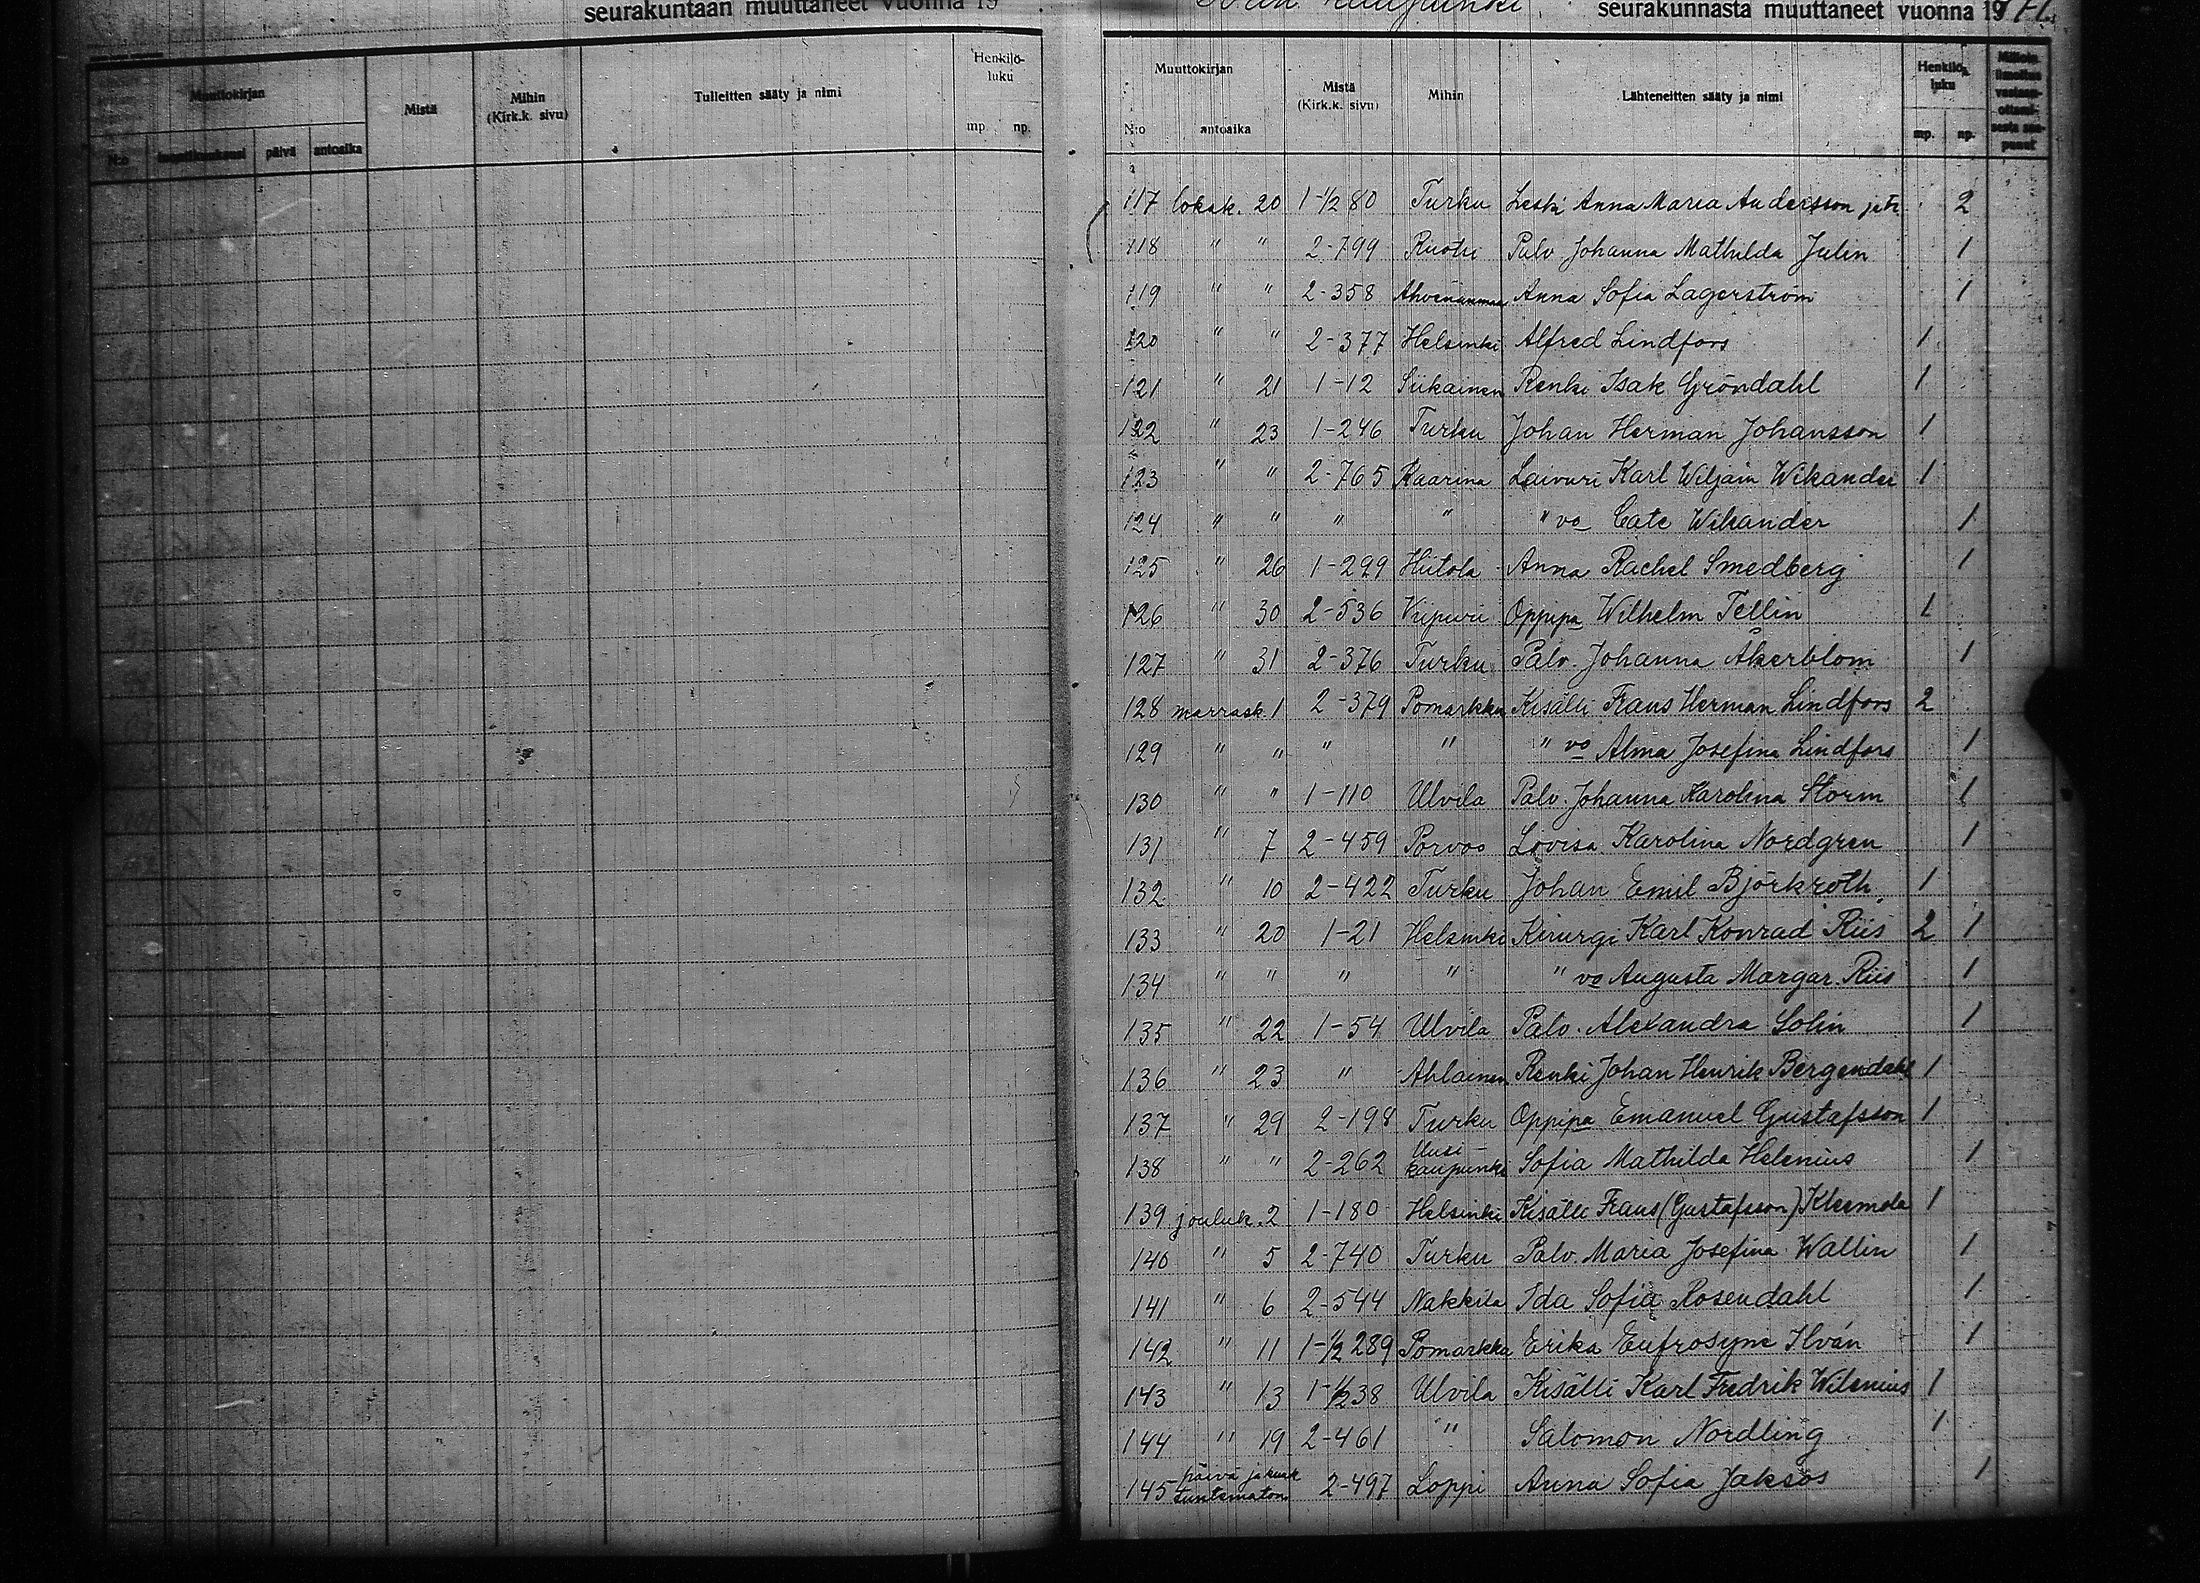 seurakuntaan muuttaneet vuonna 19
Muuttokirjan
Mistä
Mihin
(Kirk.k. sivu)
Tulleitten sääty ja nimi
Henkilö-
luku
N:o päivä antoaika mp. np.
seurakunnasta muuttaneet vuonna 19
Muuttokirjan
Mistä
(Kirk.k. sivu)
Mihin
Lähteneitten sääty ja nimi
Henkilö-
luku
N:o antoaika mp. np.
117 lokak. 20 1-½ 80 Turku Leski Anna Maria Andersson 2
118 " " 2-799 Ruotsi Palv Johanna Mathilda Julin 1
119 " " 2-358 Ahvenanmaa Anna Sofia Lagerström 1
120 " " 2-377 Helsinki Alfred Lindfors 1
121 " 21 1-12 Siikainen Renki Isak Gröndahl 1
122 " 23 1-246 Turku Johan Herman Johansson 1
123 " " 2-765 Kaarina Laivuri Karl Wiljam Wikander 1
124 " " " " " vo Cate Wikander 1
125 " 26 1-299 Hiitola Anna Rachel Smedberg 1
126 " 30 2-536 Viipuri Oppipa Wilhelm Tellin 1
127 " 31 2-376 Turku Palv. Johanna Åkerblom 1
128 marrask. 1 2-379 Pomarkku Kisälli Frans Herman Lindfors 2
129 " " " " " vo Alma Josefina Lindfors 1
130 " " 1-110 Ulvila Palv. Johanna Karolina Storm 1
131 " 7 2-459 Porvoo Lovisa Karolina Nordgren 1
132 " 10 2-422 Turku Johan Emil Björkroth 1
133 " 20 1-21 Helsinki Kirurgi Karl Konrad Riis 2 1
134 " " " " " vo Augusta Margar. Riis 1
135 " 22 1-54 Ulvila Palv. Alexandra Solin 1
136 " 23 " Ahlainen Renki Johan Henrik Bergendahl 1
137 " 29 2-198 Turku Oppipa Emanuel Gustafsson 1
138 " " 2-262 Uusi-
kaupunki Sofia Mathilda Helenius 1
139 jouluk. 2 1-180 Helsinki Kisälli Frans (Gustafsson) Klemola 1
140 " 5 2-740 Turku Palv. Maria Josefina Wallin 1
141 " 6 2-544 Nakkila Ida Sofia Rosendahl 1
142 " 11 1-½ 289 Pomarkku Erika Eufrosyne Ilván 1
143 " 13 1-½ 38 Ulvila Kisälli Karl Fredrik Wilenius 1
144 " 19 2-461 " Salomon Nordling 1
päivä ja kuuk
145 tuntematon 2-497 Loppi Anna Sofia Jaksos 1